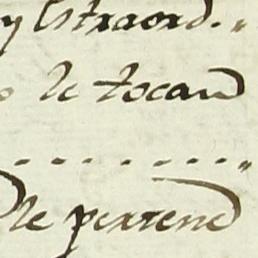 y Extraord.
le tocan
le perxene